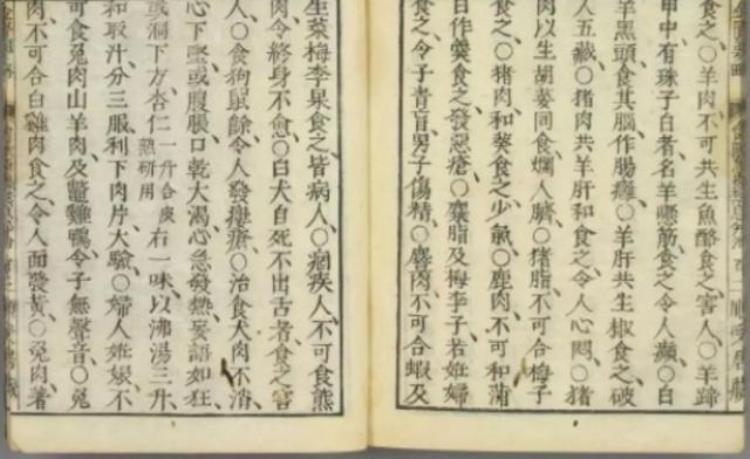 食之、○羊肉不可共生魚酪食之害人、○羊蹄
甲中有珠子白者、名羊懸筋食之令人癲、○白
羊黑頭食其腦作腸癰、○羊肝共生椒食之、破
人五藏、○猪肉共羊肝和食之、令人心悶、○猪
肉以生胡荽同食、爛人臍、○猪脂不可合梅子
食之、○猪肉和葵食之、少氣、○鹿肉不可和蒲
白作羹食之、發惡瘡、○麋脂及梅李子若姙婦
食之、令子青盲、男子傷精、○麞肉不可合蝦及
生菜梅李果食之、皆病人、○痼疾人、不可食熊
肉、令終身不愈、○白犬自死不出舌者、食之害
人、○食狗鼠餘、令人發瘻瘡、○治食犬肉不消、
心下堅或腹脹口乾大渴心急發熱妄語如狂、
或洞下方、杏仁一升合皮熟研用右一味、以沸湯三升、
和取汁、分三服、利下肉片、大驗、○婦人姙娠、不
可食兔肉山羊肉及鼈雞鴨、令子無聲音、○兔
肉、不可合白雞肉食之、令人面發黃、○兔肉、著